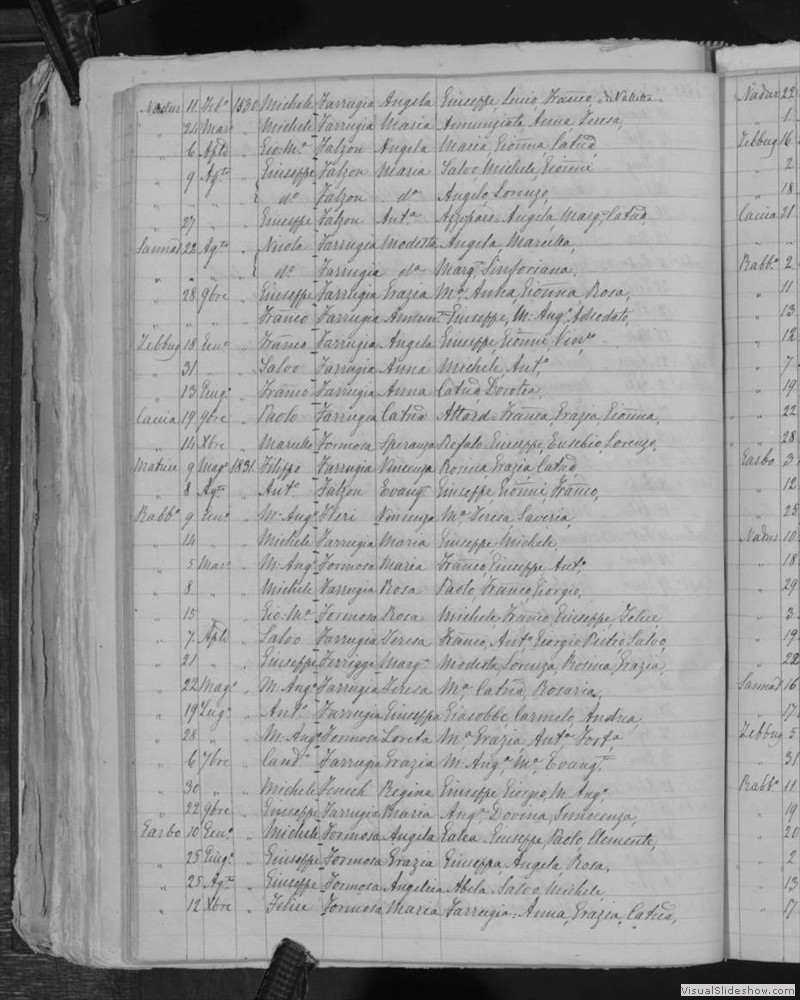 Nadur 11 Feb.o 1830 Michele Farrugia Angela Giuseppe, Lucio, Franco, di Valletta
" 21 Mar. " Michele Farrugia Maria Annunziata, Anna, Teresa,
" 6 Aple " Gio. M.a Falzon Angela Maria, Gionna, Catna,
" 9 Ag.to " Giuseppe Falzon Maria Salvo, Michele, Gionni
" " " " { do Falzon do Angelo, Lorenzo,
" 27 " " Giuseppe Falzon Ant.a Azzopardi Angela, Marg.ta Catna,
Sannat 22 Ag.to " Nicola Farrugia Modesta Angela, Marcella,
" " " " { do Farrugia do Marg.ta Sinforiana,
" 28 9bre " Giuseppe Farrugia Grazia M.a Anna, Gionna, Rosa,
" " " " Franco Farrugia Annun.ta Giuseppe, M. Ang.o, Adeodato,
Zebbug 18 Gen.o " Franco Farrugia Angela Giuseppe, Gionni, Vin.zo
" 31 " " Salvo Farrugia Anna Michele, Ant.o
" 13 Giug.o " Franco Farrugia Anna Catna, Dorotea,
Caccia 19 9bre " Paolo Farrugia Catna Attard Franca, Grazia, Gionna,
" 14 Xbre " Marcello Formosa Speranza Refalo Giuseppe, Eusebio, Lorenzo,
Matrice 9 Mag.o 1831 Filippo Farrugia Vincenza Rosina, Grazia, Catna
" 8 Ag.to " Ant.o Falzon Evang.ta Giuseppe, Gionni, Franco,
Rabb.o 9 Gen.o " M. Ang.o Fleri Vincenza M.a Teresa, Saveria,
" 14 " " Michele Farrugia Maria Giuseppe, Michele,
" 5 Mar.o " M. Ang.o Formosa Maria Franco, Giuseppe, Ant.o
" 8 " " Michele Farrugia Rosa Paolo, Franco, Giorgio,
" 15 " Gio. M.a Formosa Rosa Michele, Franco, Giuseppe, Felice
" 7 Aple " Salvo Farrugia Teresa Franco, Ant.o, Giorgio, Pietro, Salvo,
" 21 " " Giuseppe Ferriggi Marg.ta Modesta, Lorenza, Rosina, Grazia,
" 22 Mag.o " M. Ang.o Farrugia Teresa M.a Catna, Rosaria,
" 19 Lug.o " Ant.o Farrugia Giuseppa Giacobbe, Carmelo, Andrea,
" 28 " " M. Ang.o Formosa Loreta M.a Grazia, Ant.a
" 6 7bre " Cand.o Farrugia Grazia M. Ang.o, M.a, Evang.ta
" 30 " " Michele Fenech Regina Giuseppe, Giorgio, M. Ang.o
" 22 9bre " Giuseppe Farrugia Maria Ang.a Dovina, Innocenza,
Garbo 10 Gen.o " Michele Formosa Angela Galea Giuseppe, Paolo, Clemente,
" 25 Giug.o " Giuseppe Formosa Grazia Giuseppa, Angela, Rosa,
" 25 Ag.to " Giuseppe Formosa Angelica Abela Salvo, Michele
" 12 Xbre " Felice Formosa Maria Farrugia Anna, Grazia, Catna,
Nadur 22
" 1
Zebbug 16
" 2
" 18
Caccia 21
" "
Rabb.o 2
" 11
" 13
" 12
" 7
" 19
" 22
" 28
Garbo 3
" 12
" 25
Nadur 10
" 18
" 29
" 3
" 19
" 22
Sannat 16
" 17
Zebbug 5
" 31
Rabb.o 11
" 19
" 20
" 2
" 13
" 17
VisualSlideshow.com